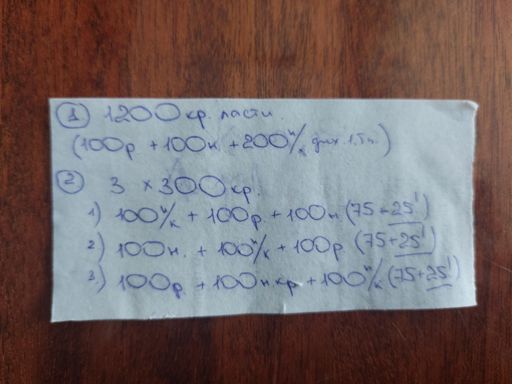 ① 1200 кр. ласты.
(100р + 100н + 200н/к дых. 1,5 п.)
② 3 × 300 кр.
1) 100н/к + 100р + 100н (75+25!)
2) 100н. + 100н/к + 100р (75+25!)
3) 100р. + 100н кр + 100н/к (75+25!)